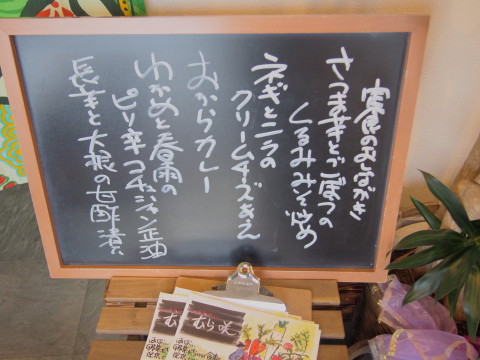 昼食のおしながき
さつま芋とごぼうの
くるみみそ炒め
ネギとニラの
クリームチーズあえ
おからカレー
わかめと春雨の
ピリ辛コチュジャン正油
長芋と大根の甘酢煮
むら咲
むら咲